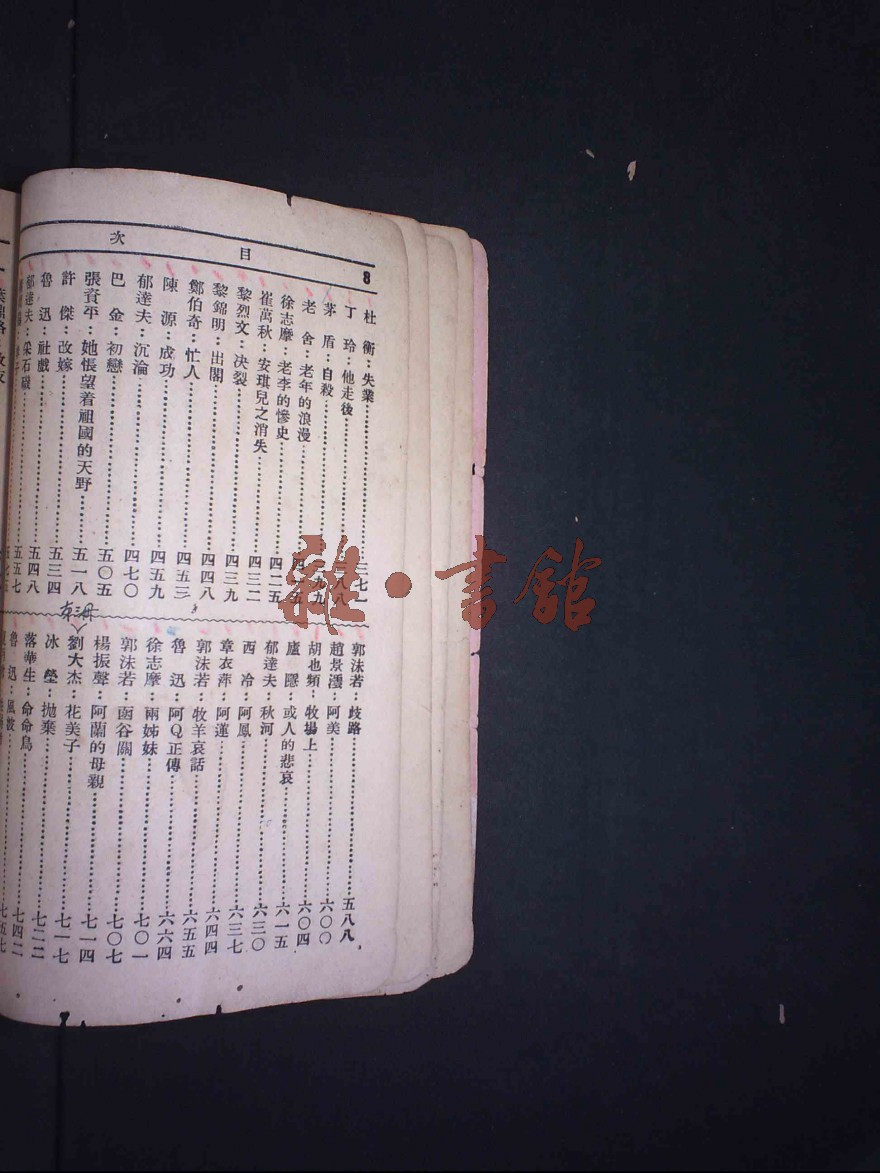 8
目次
杜衡：失業……三七一
丁玲：他走後……三八八
茅盾：自殺……三九九
老舍：老年的浪漫……四一五
徐志摩：老李的慘史……四二五
崔萬秋：安琪兒之消失……四三二
黎烈文：決裂……四三九
黎錦明：出閣……四四八
鄭伯奇：忙人……四五三
陳源：成功……四五九
郁達夫：沉淪……四七〇
巴金：初戀……五〇五
張資平：她悵望着祖國的天野……五一八
許傑：改嫁……五三四
魯迅：社戲……五四八
郁達夫：采石磯……五五七
郭沫若：歧路……五八八
趙景澐：阿美……六〇〇
胡也頻：牧場上……六〇四
廬隱：或人的悲哀……六一五
郁達夫：秋河……六三〇
西冷：阿鳳……六三七
章衣萍：阿蓮……六四四
郭沫若：牧羊哀話……六五五
魯迅：阿Q正傳……六六四
徐志摩：兩姊妹……七〇一
郭沫若：函谷關……七〇七
楊振聲：阿蘭的母親……七一四
劉大杰：花美子……七一七
冰瑩：拋棄……七二二
落華生：命命鳥……七四二
魯迅：風波……七五七
雜·書館